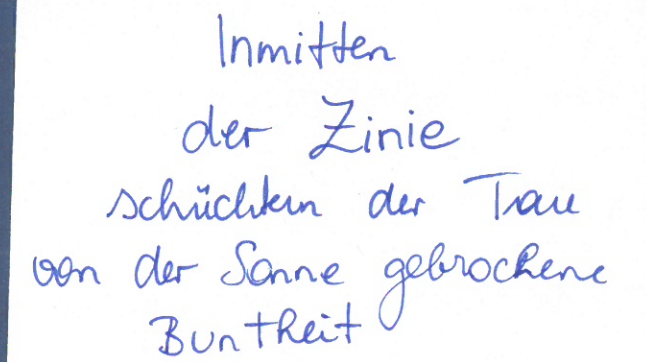 Inmitten
der Zinie
schüchtern der Tau
von der Sonne gebrochene
Buntheit